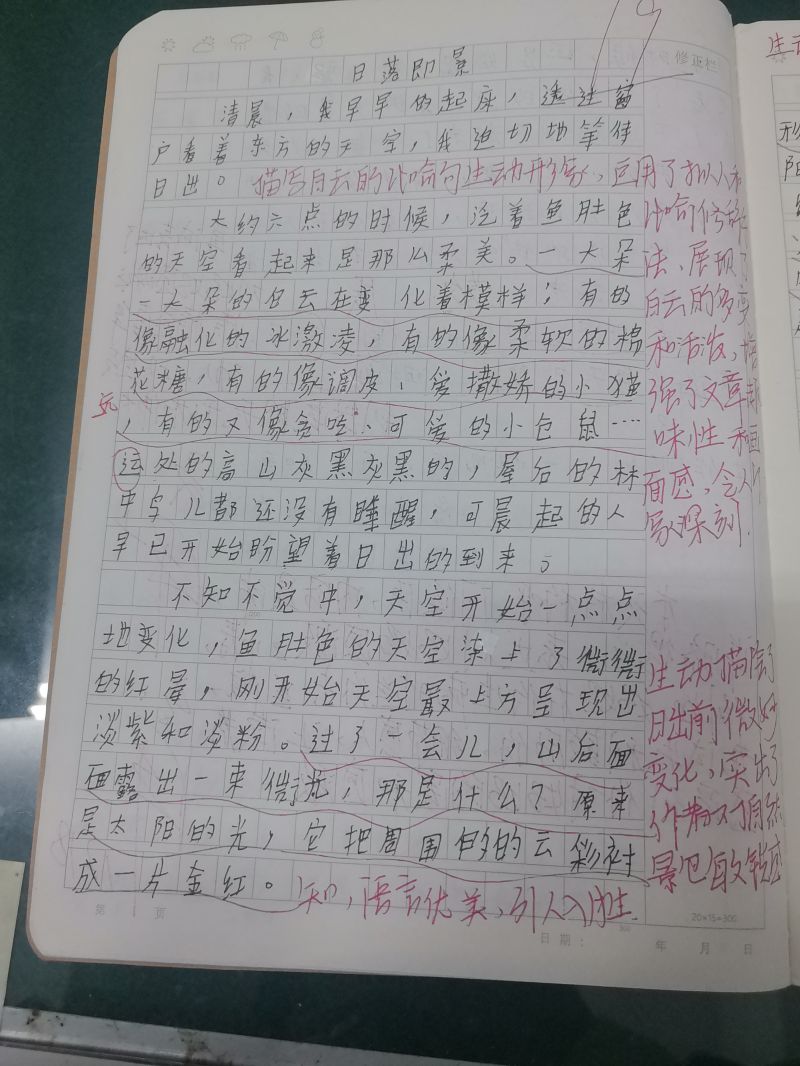 19
修正栏
日落即景
清晨，我早早的起床，透过窗
户看着东方的天空，我迫切地等待
日出。描写白云的比喻句生动形象，运用了拟人和
大约六点的时候，泛着鱼肚色
比喻修辞
的天空看起来是那么柔美。一大朵
法，展现了
一大朵的白云在变化着模样；有的
白云的多变
像融化的冰激凌，有的像柔软的棉
和活泼，增
花糖，有的像调皮、爱撒娇的小猫
强了文章
，有的又像贪吃、可爱的小仓鼠……
味性和画
远处的高山灰黑灰黑的，屋后的林
面感，令人
中鸟儿都还没有睡醒，可晨起的人
象深刻.
早已开始盼望着日出的到来。
不知不觉中，天空开始一点点
地变化，鱼肚色的天空染上了微微
生动描
的红晕，刚开始天空最上方呈现出
日出前微妙
淡紫和淡粉。过了一会儿，山后面
变化，突出了
面露出一束微光，那是什么？原来
作者对自然
是太阳的光，它把周围的云彩衬
景色敏锐感
成一片金红。知，语言优美，引人入胜.
第 1 页
20×15=300
日期：
年 月 日